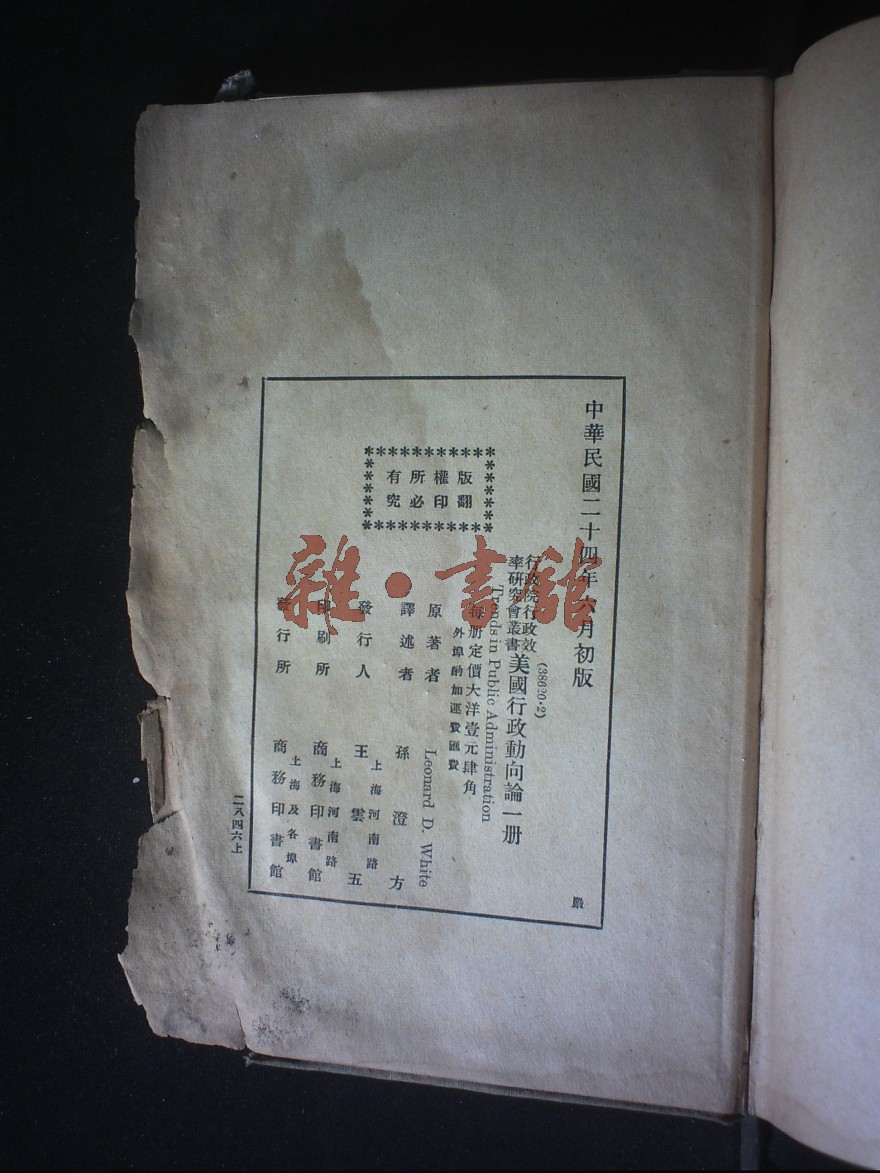 中華民國二十四年六月初版
嚴
(38620·2)
行政院行政效
率研究會叢書
美國行政動向論一册
Trends in Public Administration
每册定價大洋壹元肆角
外埠酌加運費匯費
版權所有
翻印必究
原著者 Leonard D. White
譯述者 孫澄方
發行人 王雲五
上海河南路
印刷所 商務印書館
上海河南路
發行所 商務印書館
上海及各埠
二八四六上
雜·書館